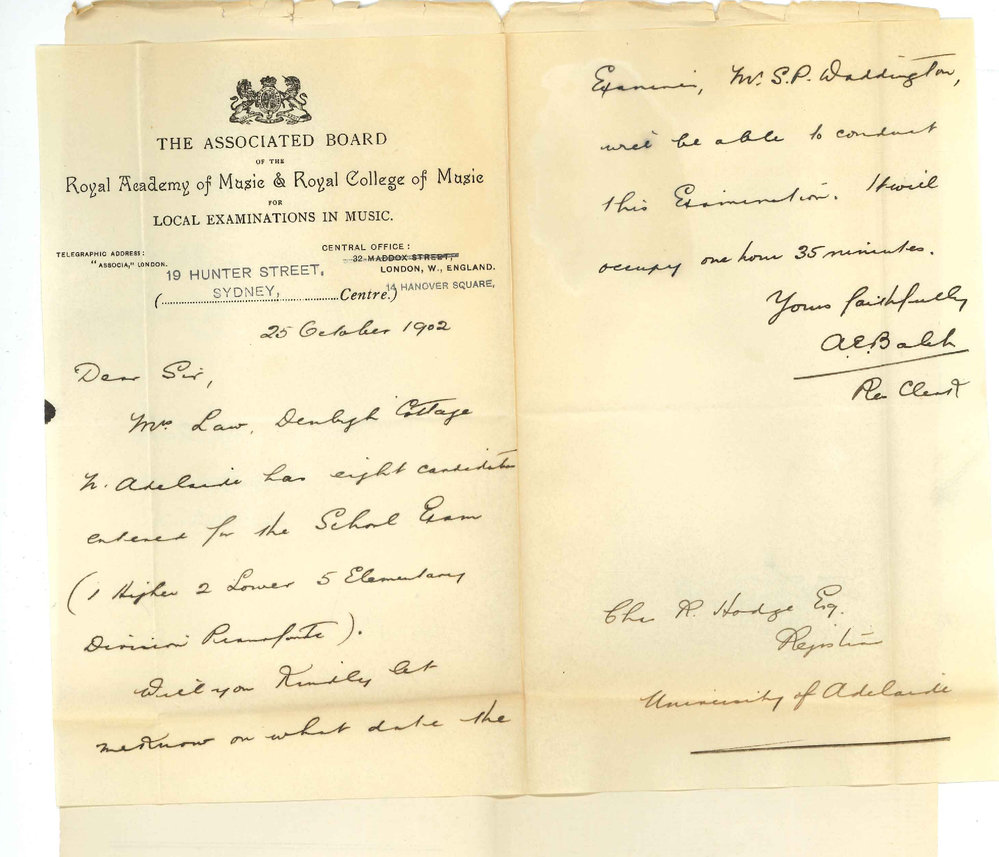 THE ASSOCIATED BOARD
OF THE
Royal Academy of Music & Royal College of Music
FOR
LOCAL EXAMINATIONS IN MUSIC.
TELEGRAPHIC ADDRESS:
"ASSOCIA," LONDON.
CENTRAL OFFICE:
32 MADDOX STREET,
LONDON, W., ENGLAND.
14 HANOVER SQUARE,
19 HUNTER STREET,
SYDNEY,
(..........Centre.)
25 October 1902
Dear Sir,
Mrs Law, Denbigh Cottage
N. Adelaide has eight candidates
entered for the School Exam
(1 Higher 2 Lower 5 Elementary
Division Pianoforte).
Will you Kindly let
me know on what date the
Examiner, Mr. S.P. Waddington,
will be able to conduct
this Examination. It will
occupy one hour 35 minutes.
Yours faithfully
A.E. Balch
Res Clerk
Chs R. Hodge Esq.
Registrar
University of Adelaide